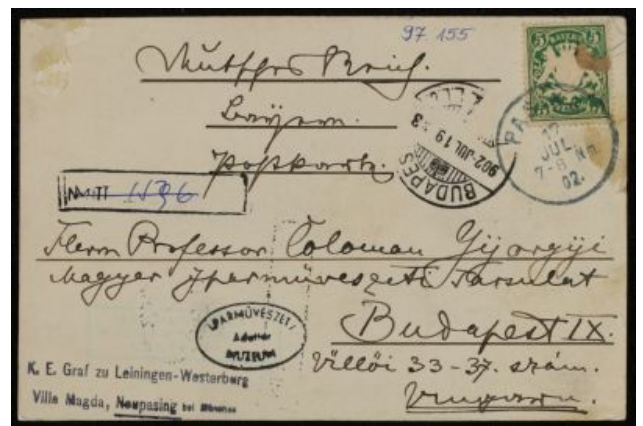 97.155
Deutsches Reich.
Bayern.
Postkarte.
BAYERN
5 5
PA
17
JUL
7-8 Nm
02.
BUDAPEST
902 JUL 19
1396
Herrn Professor Coloman Györgyi
Magyar Iparművészeti Társulat
Budapest IX.
Üllői 33-37. szám.
Ungarn.
IPARMŰVÉSZETI
Adattár
MUZEUM
K. E. Graf zu Leiningen-Westerburg
Villa Magda, Neupasing bei München